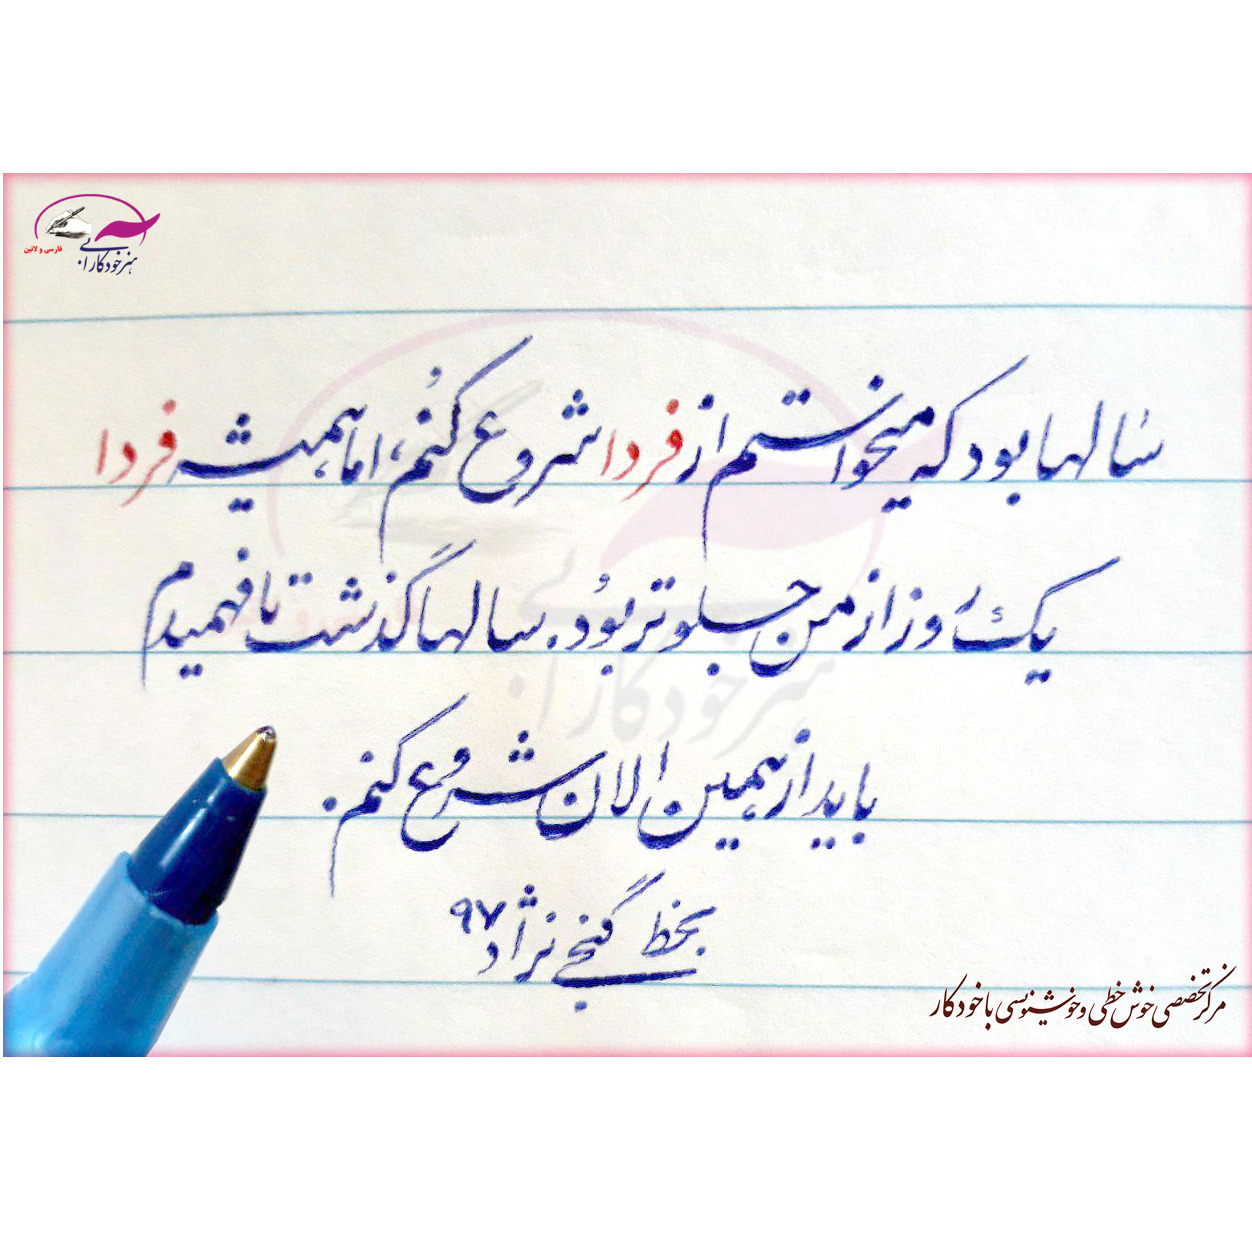 هنر خودکار آبی
فارسی و لاتین
سالها بود که میخواستم از فردا شروع کنم، اما همیشه فردا
یک روز از من جلوتر بود. سالها گذشت تا فهمیدم
باید از همین الان شروع کنم.
بخط گنجی نژاد ۹۷
مرکز تخصصی خوش خطی و خوشنویسی با خودکار